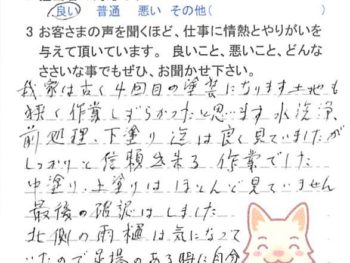 良い 普通 悪い その他(
3 お客さまの声を聞くほど、仕事に情熱とやりがいを
与えて頂いています。良いこと、悪いこと、どんな
ささいな事でもぜひ、お聞かせ下さい。
我家は古く4回目の塗装になります土地も
狭く作業しずらかったと思います水洗浄、
前処理、下塗り迄は良く見ていましたが
しっかりと信頼出来る作業でした
中塗り、上塗りはほとんど見ていません
最後の確認はしました
北側の雨樋は気になって
いたので足場のある時に自分